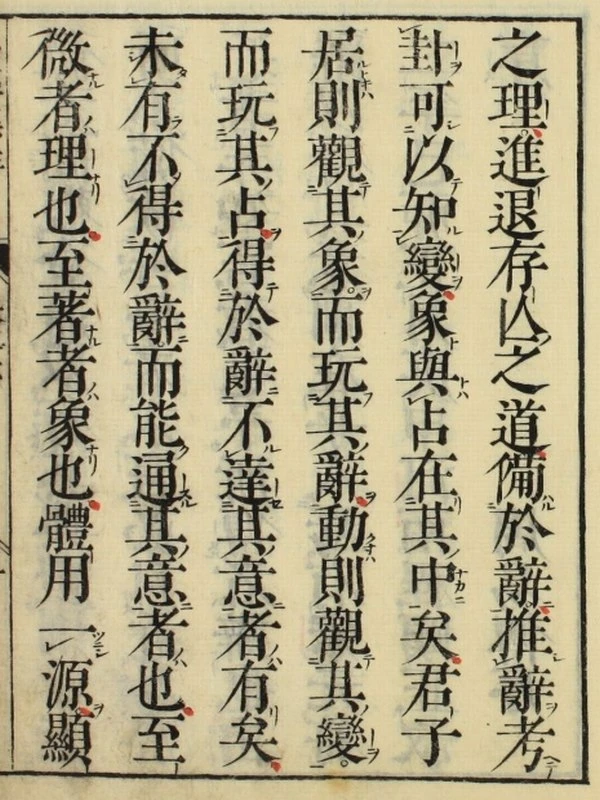 之理進退存亾之道備於辭推辭考
卦可以知變象與占在其中矣君子
居則觀其象而玩其辭動則觀其變
而玩其占得於辭不達其意者有矣
未有不得於辭而能通其意者也至
微者理也至著者象也體用一源顯